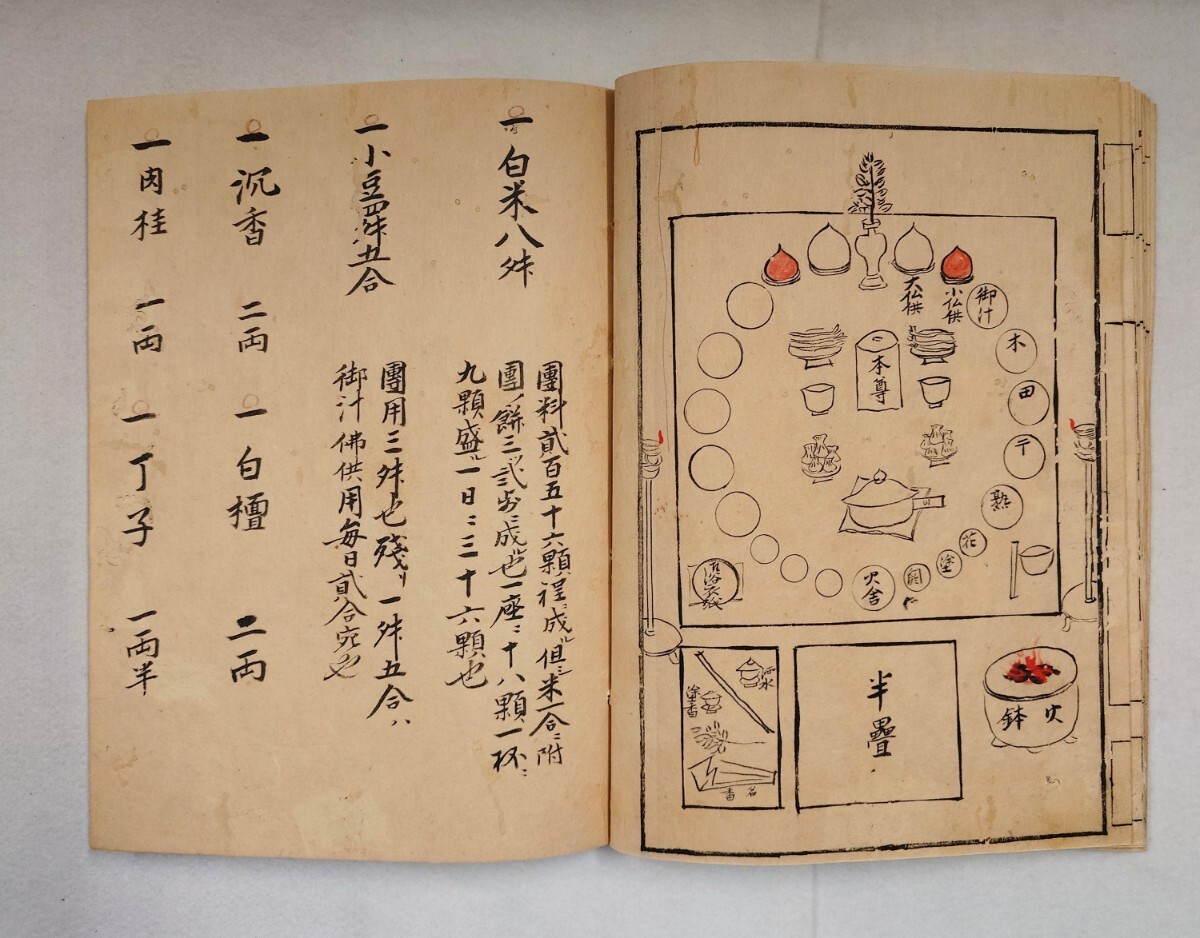 御汁
小仏供
大仏供
木
本尊
田
熟
花
塗
火舎
半疊
火鉢
洒水
塗香
名香
一白米八舛
團料貳百五十六顆ノ程ニ成ル但シ米一合ニ附
團ノ餅二ツ弐歩ニ成ル也一座ニ十八顆一杯ニ
九顆盛ル一日ニ三十六顆也
一小豆四舛五合
團用三舛也殘リ一舛五合ハ
御汁佛供用毎日貳合宛也
一沉香 二両 一白檀 二両
一肉桂 一両 一丁子 一両半